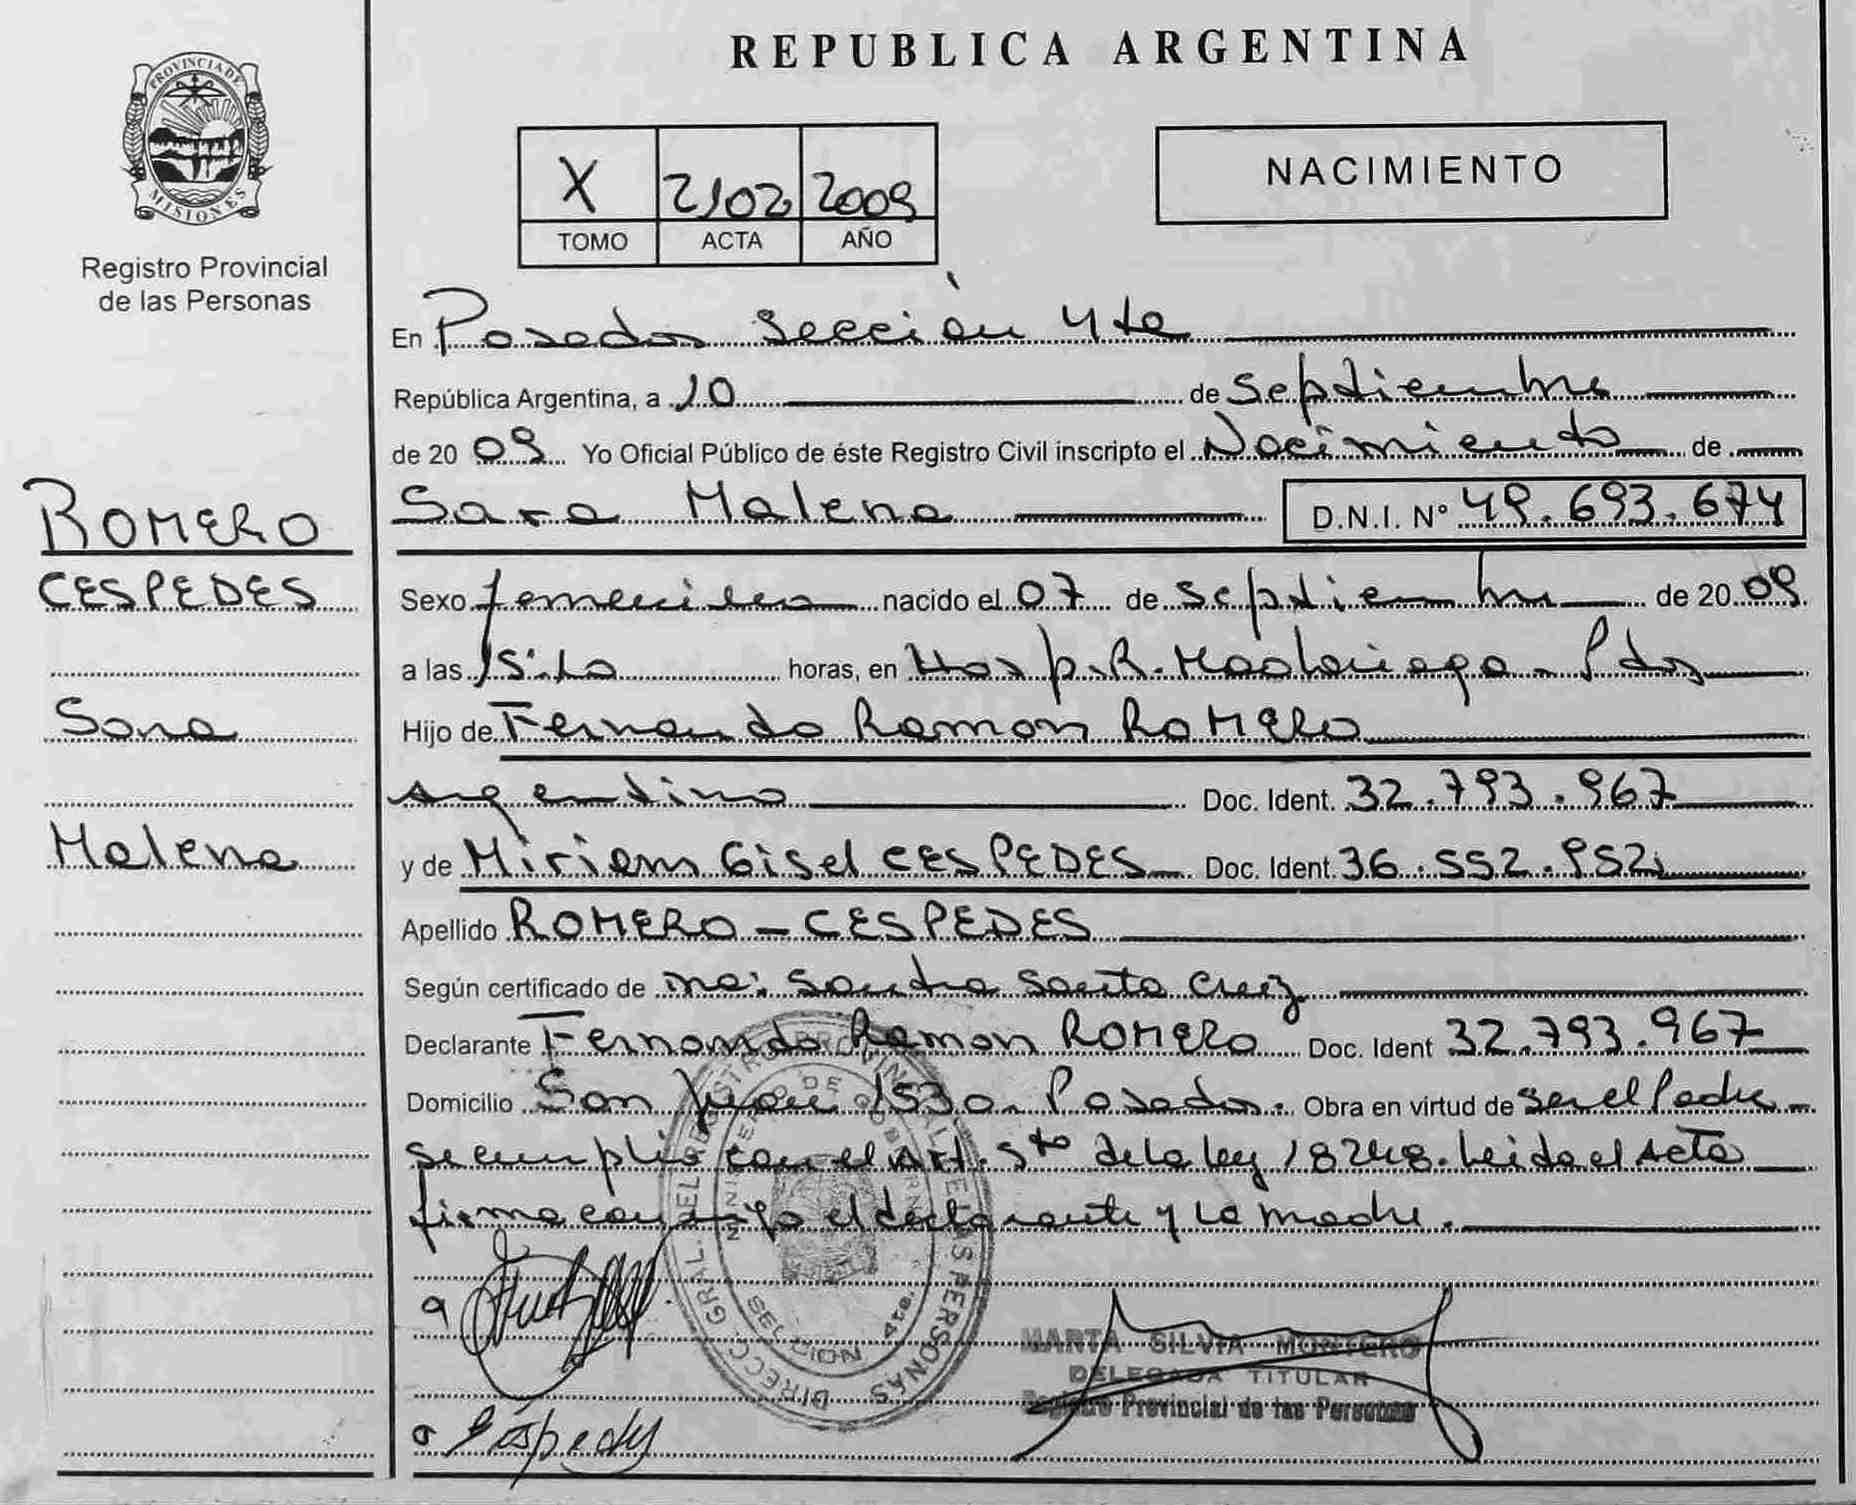 REPUBLICA ARGENTINA
PROVINCIA DE
MISIONES
Registro Provincial
de las Personas
X 2102 2009
TOMO ACTA AÑO
NACIMIENTO
ROMERO
CESPEDES
Sara
Malena
En Posadas Sección 4ta
República Argentina, a 10 de Septiembre
de 2009 Yo Oficial Público de éste Registro Civil inscripto el Nacimiento de
Sara Malena D.N.I. Nº 49.693.674
Sexo femenino nacido el 07 de Septiembre de 2009
a las horas, en Hosp. R. Madariaga - Pdas
Hijo de Fernando Ramon ROMERO
Argentino Doc. Ident. 32.793.967
y de Miriam Gisel CESPEDES Doc. Ident. 36.552.952
Apellido ROMERO - CESPEDES
Según certificado de Sandra Santa Cruz
Declarante Fernando Ramon ROMERO Doc. Ident 32.793.967
Domicilio San Juan 1530 - Posadas. Obra en virtud de ser el Padre -
se cumplió con el Art. 5to de la ley 18248. Leida el acta
firma conmigo el declarante y la madre.
DIRECC. GRAL. DEL REGISTRO PROVINCIAL DE LAS PERSONAS
MINISTERIO DE GOBIERNO
SECCION 4ta.
MARTA SILVIA MONTERO
DELEGADA TITULAR
Registro Provincial de las Personas
Céspedes